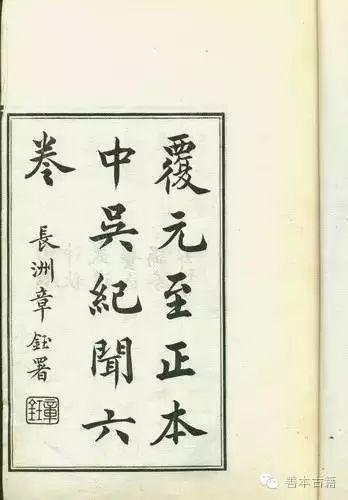 覆元至正本
中吳紀聞六
卷
長洲章鈺署
章鈺
善本古籍